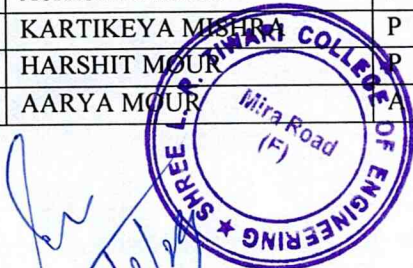 KARTIKEYA MISHRA P
HARSHIT MOUR P
AARYA MOUR A
SHREE L. R. TIWARI COLLEGE OF ENGINEERING ★
Mira Road
(E)